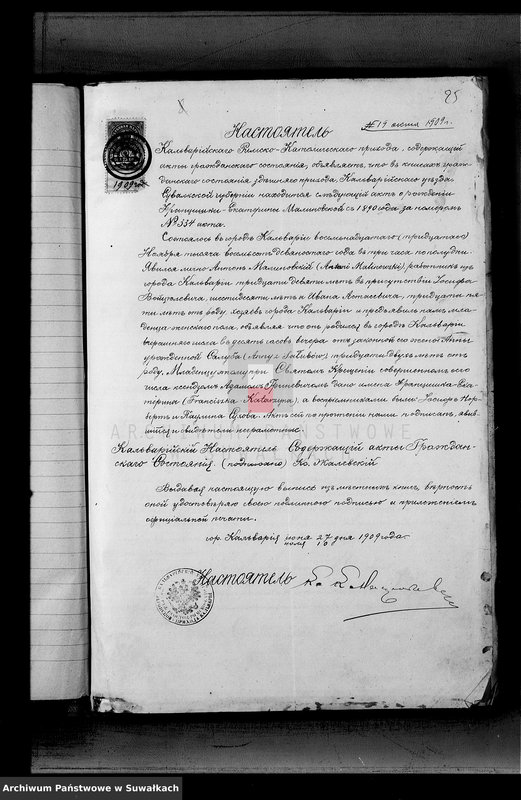 25
№ 19 1909 г.
Настоятель
Кальварійскаго Римско-Католическаго прихода, содержащій
акты гражданскаго состоянія, объявляетъ, что въ книгахъ граж-
данскаго состоянія здѣшняго прихода, Кальварійскаго уѣзда
Сувалкской губерніи находится слѣдующій актъ о рожденіи
Францишки-Екатерины Малиновской съ 1890 года за номеромъ
№ 334 акта.
Состоялось въ городѣ Кальваріи восемнадцатаго (тридцатаго)
Ноября тысяча восемьсотъ девяностаго года въ три часа пополудни.
Явился лично Антонъ Малиновскій (Antoni Malinowski), работникъ изъ
города Кальваріи тридцати девяти лѣтъ въ присутствіи Іосифа
Войцюлевича, шестидесяти лѣтъ и Ивана, тридцати пя-
ти лѣтъ отъ роду, хозяевъ города Кальваріи и предъявилъ намъ мла-
денца женскаго пола, объявляя что онъ родился въ городѣ Кальваріи
вчерашняго числа въ десять часовъ вечера отъ законной его жены Анны
урожденной Салуба (Anny z Salubów) тридцати двухъ лѣтъ отъ
роду. Младенцу этому при Святомъ Крещеніи совершенномъ сего
числа ксендзомъ Адамомъ Гриневичемъ дано имена Францишка-Ека-
терина (Franciszka Katarzyna), а воспріемниками были: Іосифъ Нор-
бертъ и Паулина. Актъ сей по прочтеніи нами подписанъ, явив-
шійся и свидѣтели неграмотные.
Кальварійскій Настоятель Содержащій акты Граждан-
скаго Состоянія. (подписано) Кс. Жалевскій
Выдавая настоящую выпись изъ метныхъ книгъ, вѣрность
оной удостовѣряю своею подлинною подписью и приложеніемъ
оффиціальной печати.
гор. Кальварія іюня/іюля 27/10 дня 1909 года.
Настоятель
1909
ARCHIWUM PAŃSTWOWE
Archiwum Państwowe w Suwałkach